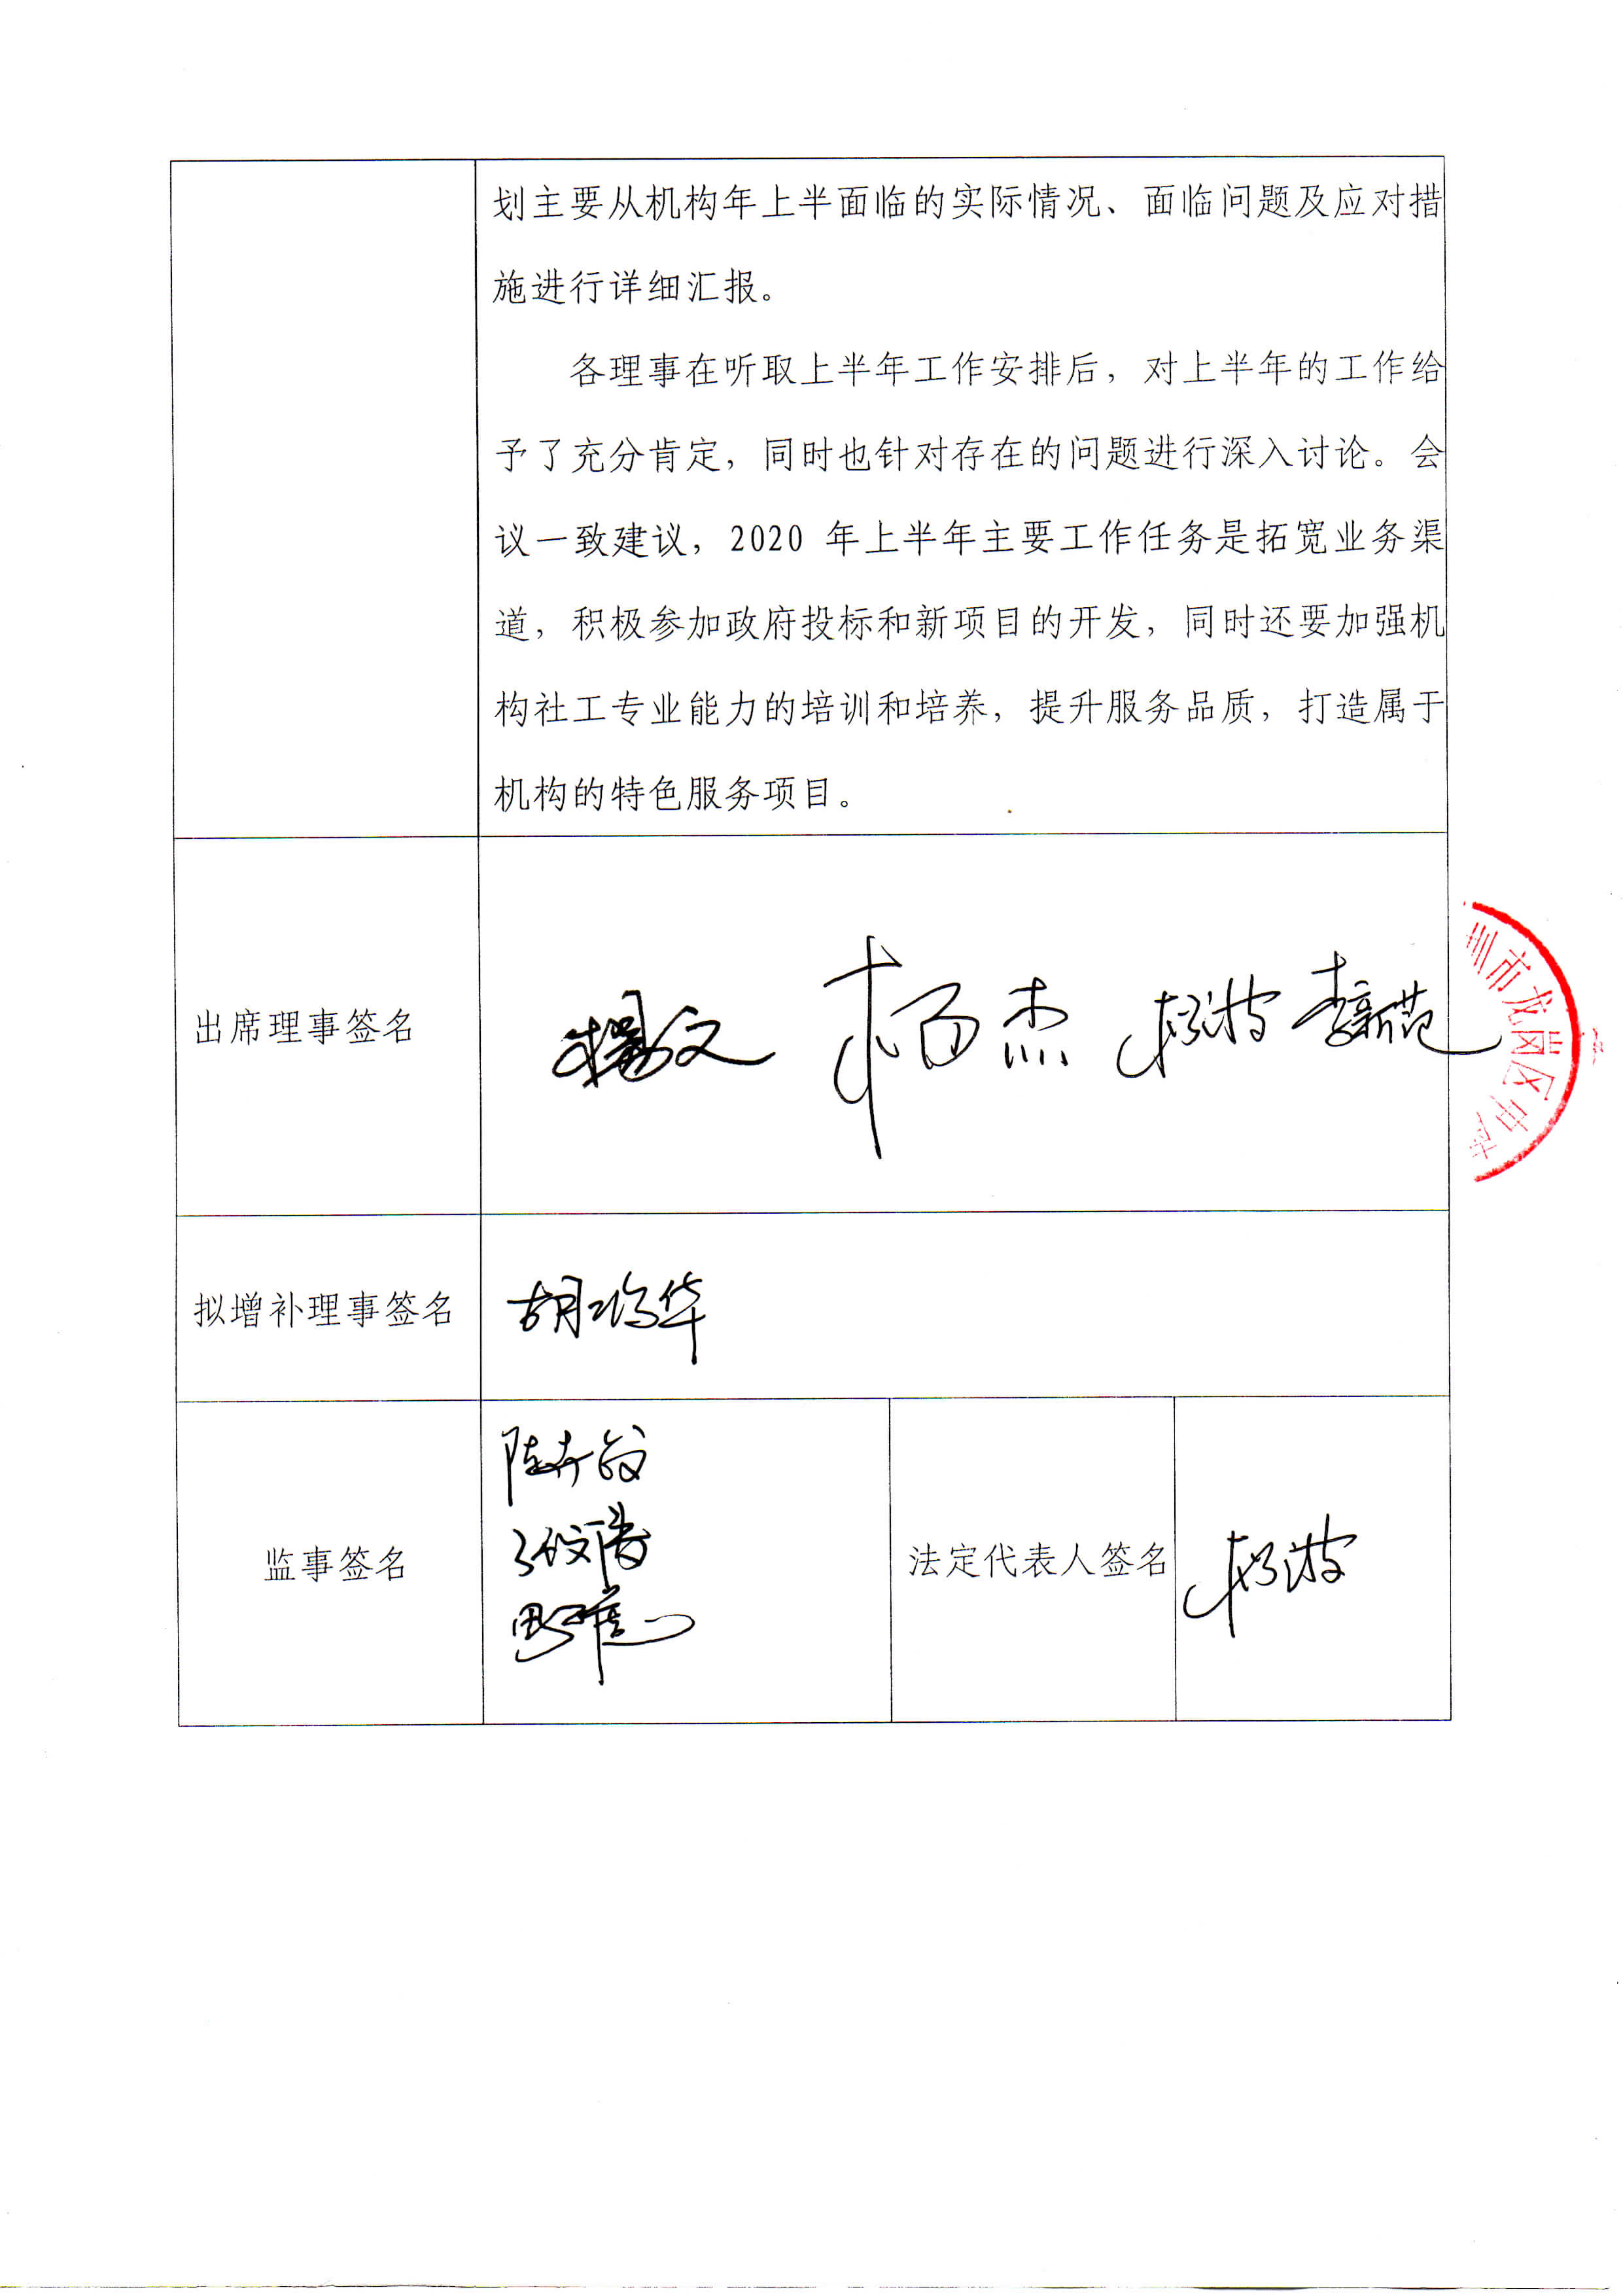 划主要从机构年上半面临的实际情况、面临问题及应对措
施进行详细汇报。
各理事在听取上半年工作安排后，对上半年的工作给
予了充分肯定，同时也针对存在的问题进行深入讨论。会
议一致建议，2020 年上半年主要工作任务是拓宽业务渠
道，积极参加政府投标和新项目的开发，同时还要加强机
构社工专业能力的培训和培养，提升服务品质，打造属于
机构的特色服务项目。
出席理事签名
杰
圳市龙岗区中
拟增补理事签名
胡 华
监事签名
法定代表人签名